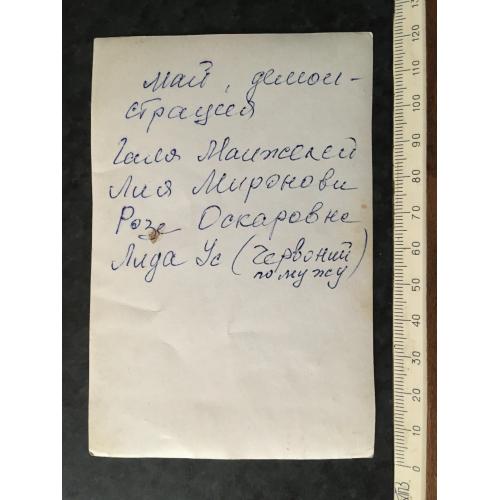 май, демон-
страция
Галя Манжелей
Лия Миронови
Роза Оскаровна
Лида Ус (Червоний
по мужу)
0 10 20 30 40 50 60 70 80 90 100 110 120 130